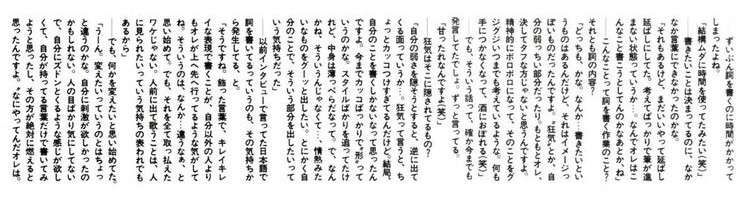 ──ずいぶん詞を書くのに時間がかかって
しまったよね。
「結構ムダに時間を使ってたみたい（笑）」
──書きたいことは決まってるのに、なか
なか言葉にできなかったのかな。
「それもあるけど、まだいいやって延ばし
延ばしにしてた。考えてばっかりで筆が進
まない状態っていうか…。なんでオレはこ
んなこと書こうとしてんのかなあとか、ね」
──こんなことって詞を書く作業のこと？
それとも詞の内容？
「どっちも、かな。なんか…書きたいとい
うものはあるんだけど、それはイメージっ
ぽいものだったんですよ。〝狂気〟とか、自
分の弱っちい部分だったり。もともとオレ、
決してタフな方じゃないと思うんですよ。
精神的にボロボロになって、そのことをグ
ジグジいつまでも考えているような。何も
手につかなくなって、酒におぼれる（笑）」
──でも、そういう話って、確か今までも
発言してたでしょ。ずっと言ってる。
「甘ったれなんですよ（笑）」
──狂気はそこに隠されてるもの？
「自分の弱さを隠そうとすると、逆に出て
くる面っていうか…。狂気って言うと、ち
ょっとカッコつけすぎてるんだけど、結局、
自分のことを書くしかないなって思ったん
ですよ。今までカッコばっかりで、〝形〟って
いうのかな。スタイルばかりを追ってたけ
れど、中身は薄っぺらだなって。で、なん
かね、そういうんじゃなくて…情熱みた
いなものをクーッと出したい。とにかく自
分のことで、そういう部分を出したいって
いう気持ちだった」
──以前インタビューで言ってた日本語で
詞を書いてるっていうのも、その気持ちか
ら発生してると。
「そうですね。飾った言葉で、キレイキレ
イな表現で書くことが、自分以外の人より
もオレが上へ先へ行ってるような気がして
ね。そういうのは、なんか…違うなぁ、と
思い始めて。でも、それを全て取っ払えた
ワケじゃない。人前に出て歌うことは、人
に見られたいっていう気持ちの表われでも
あるから」
──でも、何かを変えたいと思い始めてた。
「うーん。変えたいっていうのとはちょっ
と違うのかな。自分に刺激が欲しかったの
かもしれない。人の目ばかり気にしてない
で、自分にズドンとくるような感じが欲し
くて、自分が持ってる言葉だけで書いてみ
ようと思ったし、その方が絶対に燃えると
思ったんですよ。〝なにやってんだオレは。